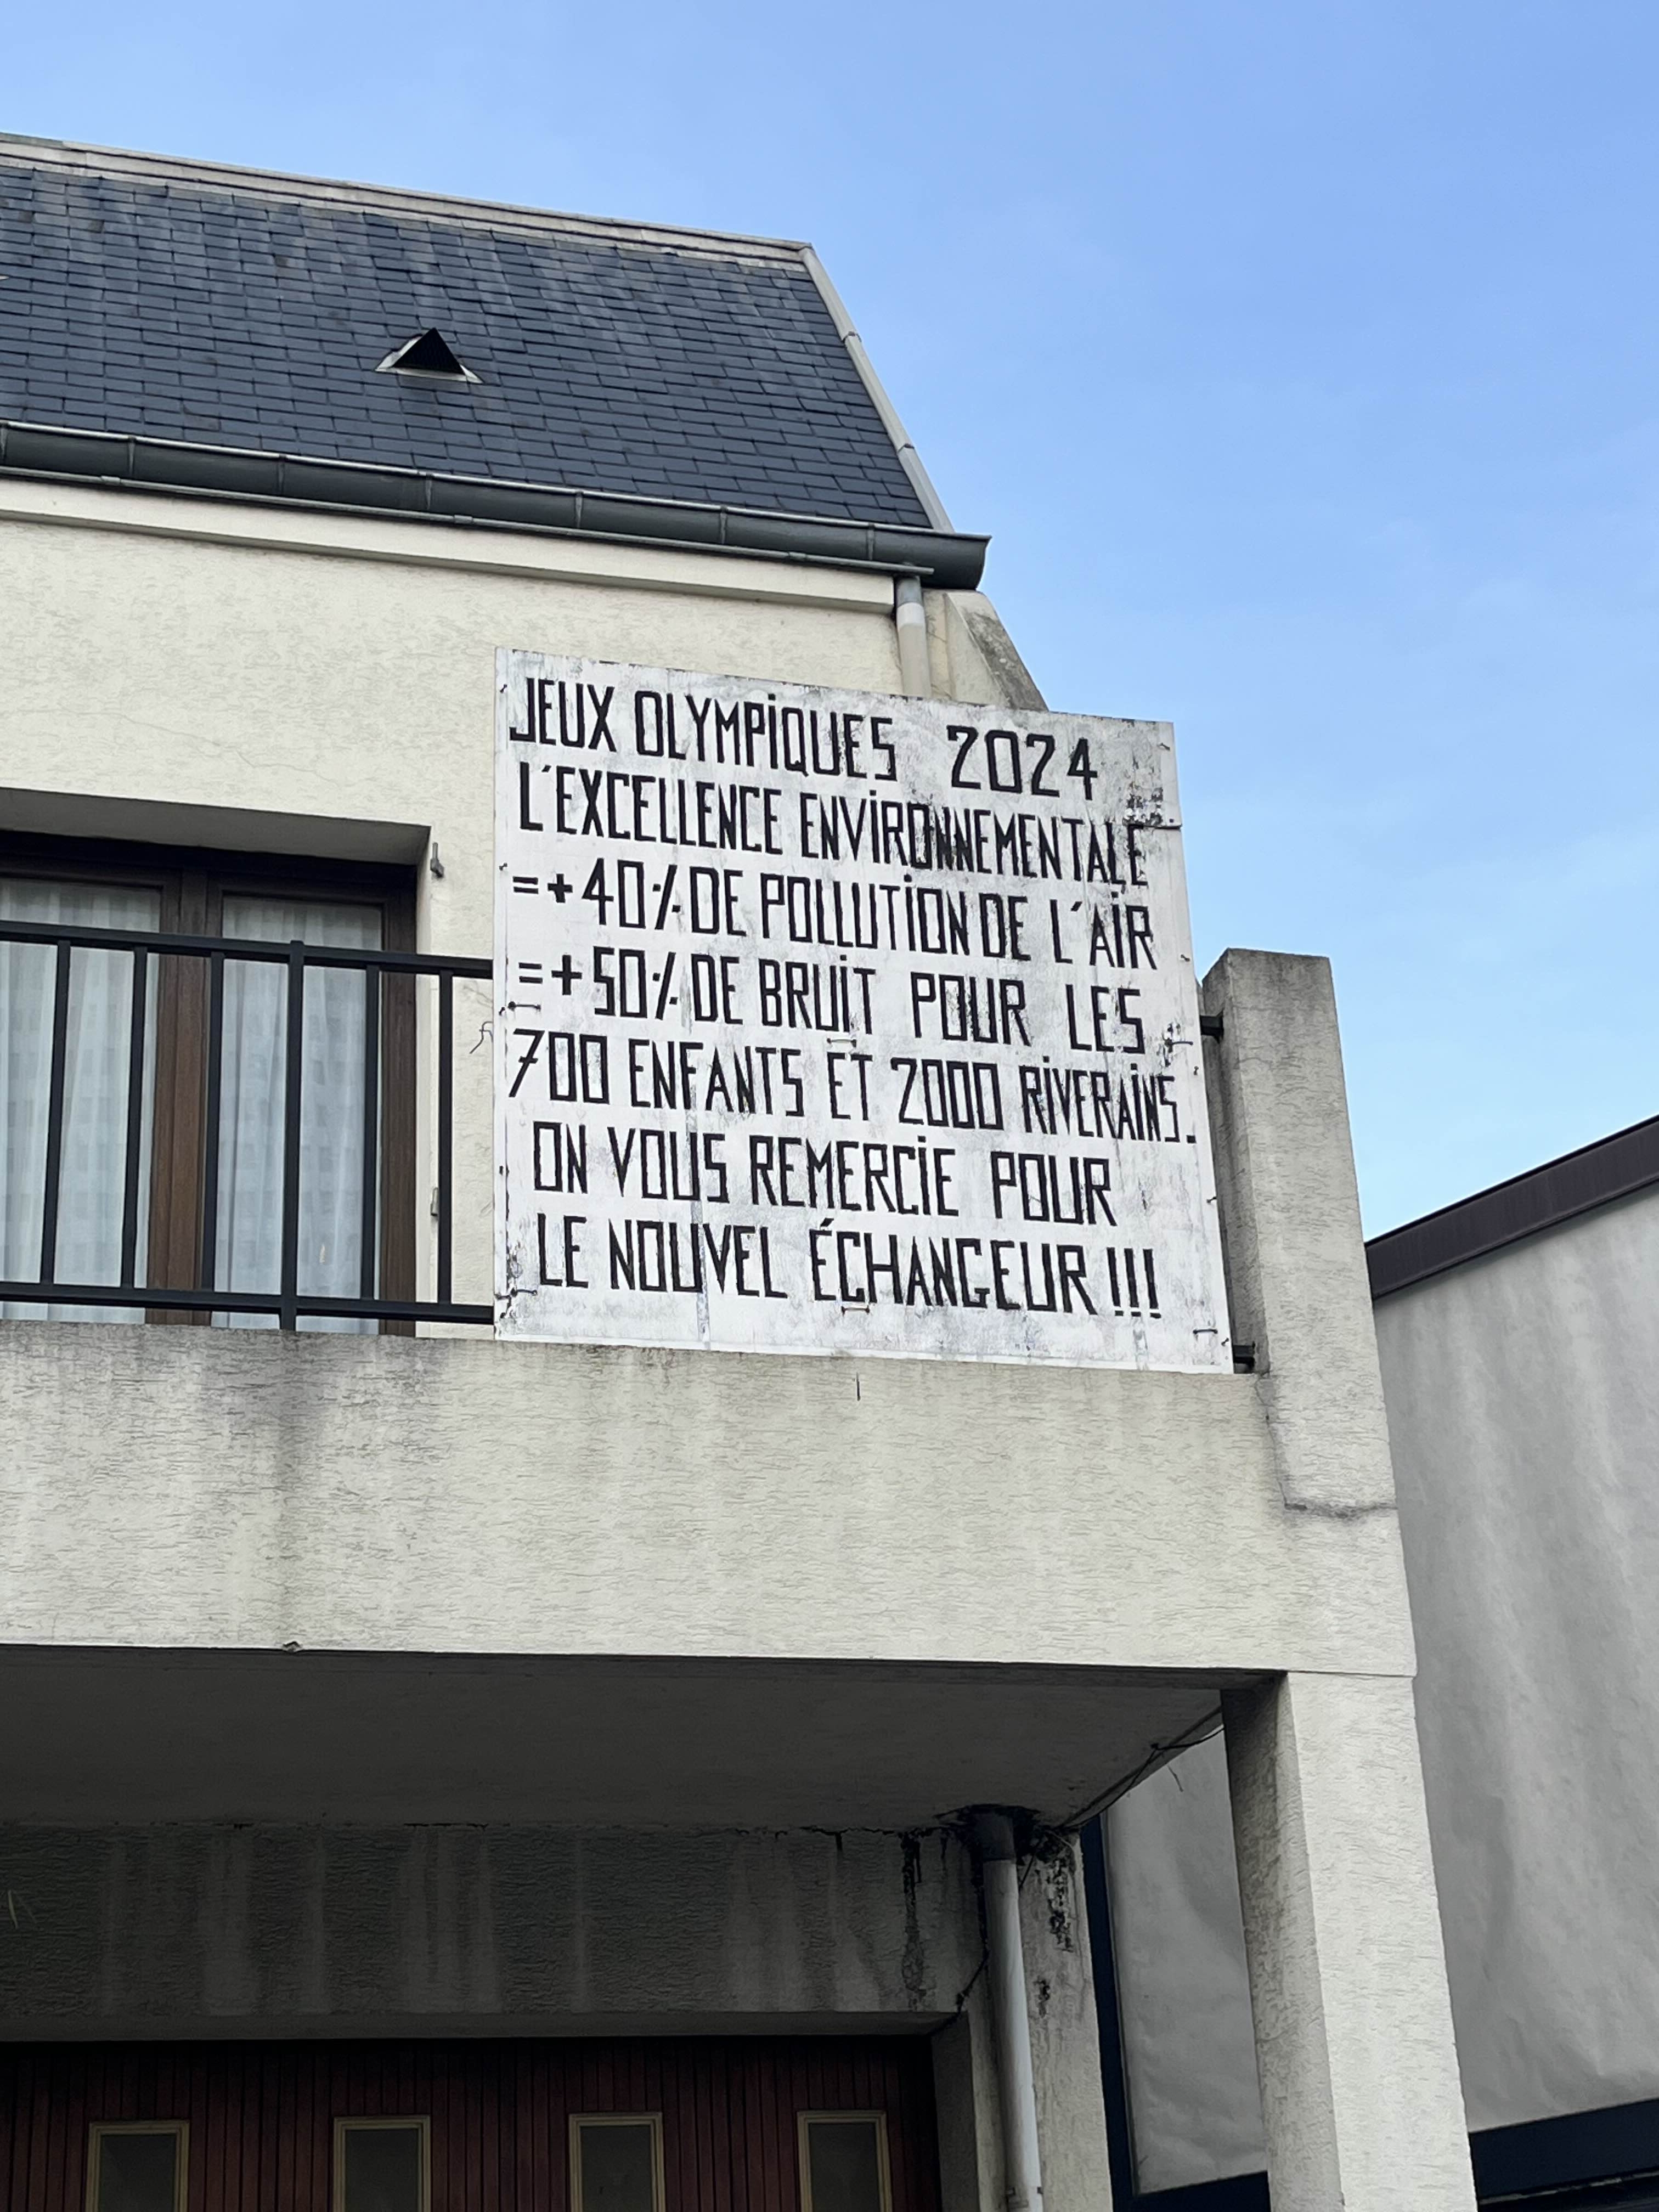 JEUX OLYMPIQUES 2024
L'EXCELLENCE ENVIRONNEMENTALE
=+40% DE POLLUTION DE L'AIR
=+50% DE BRUIT POUR LES
700 ENFANTS ET 2000 RIVERAINS.
ON VOUS REMERCIE POUR
LE NOUVEL ÉCHANGEUR !!!